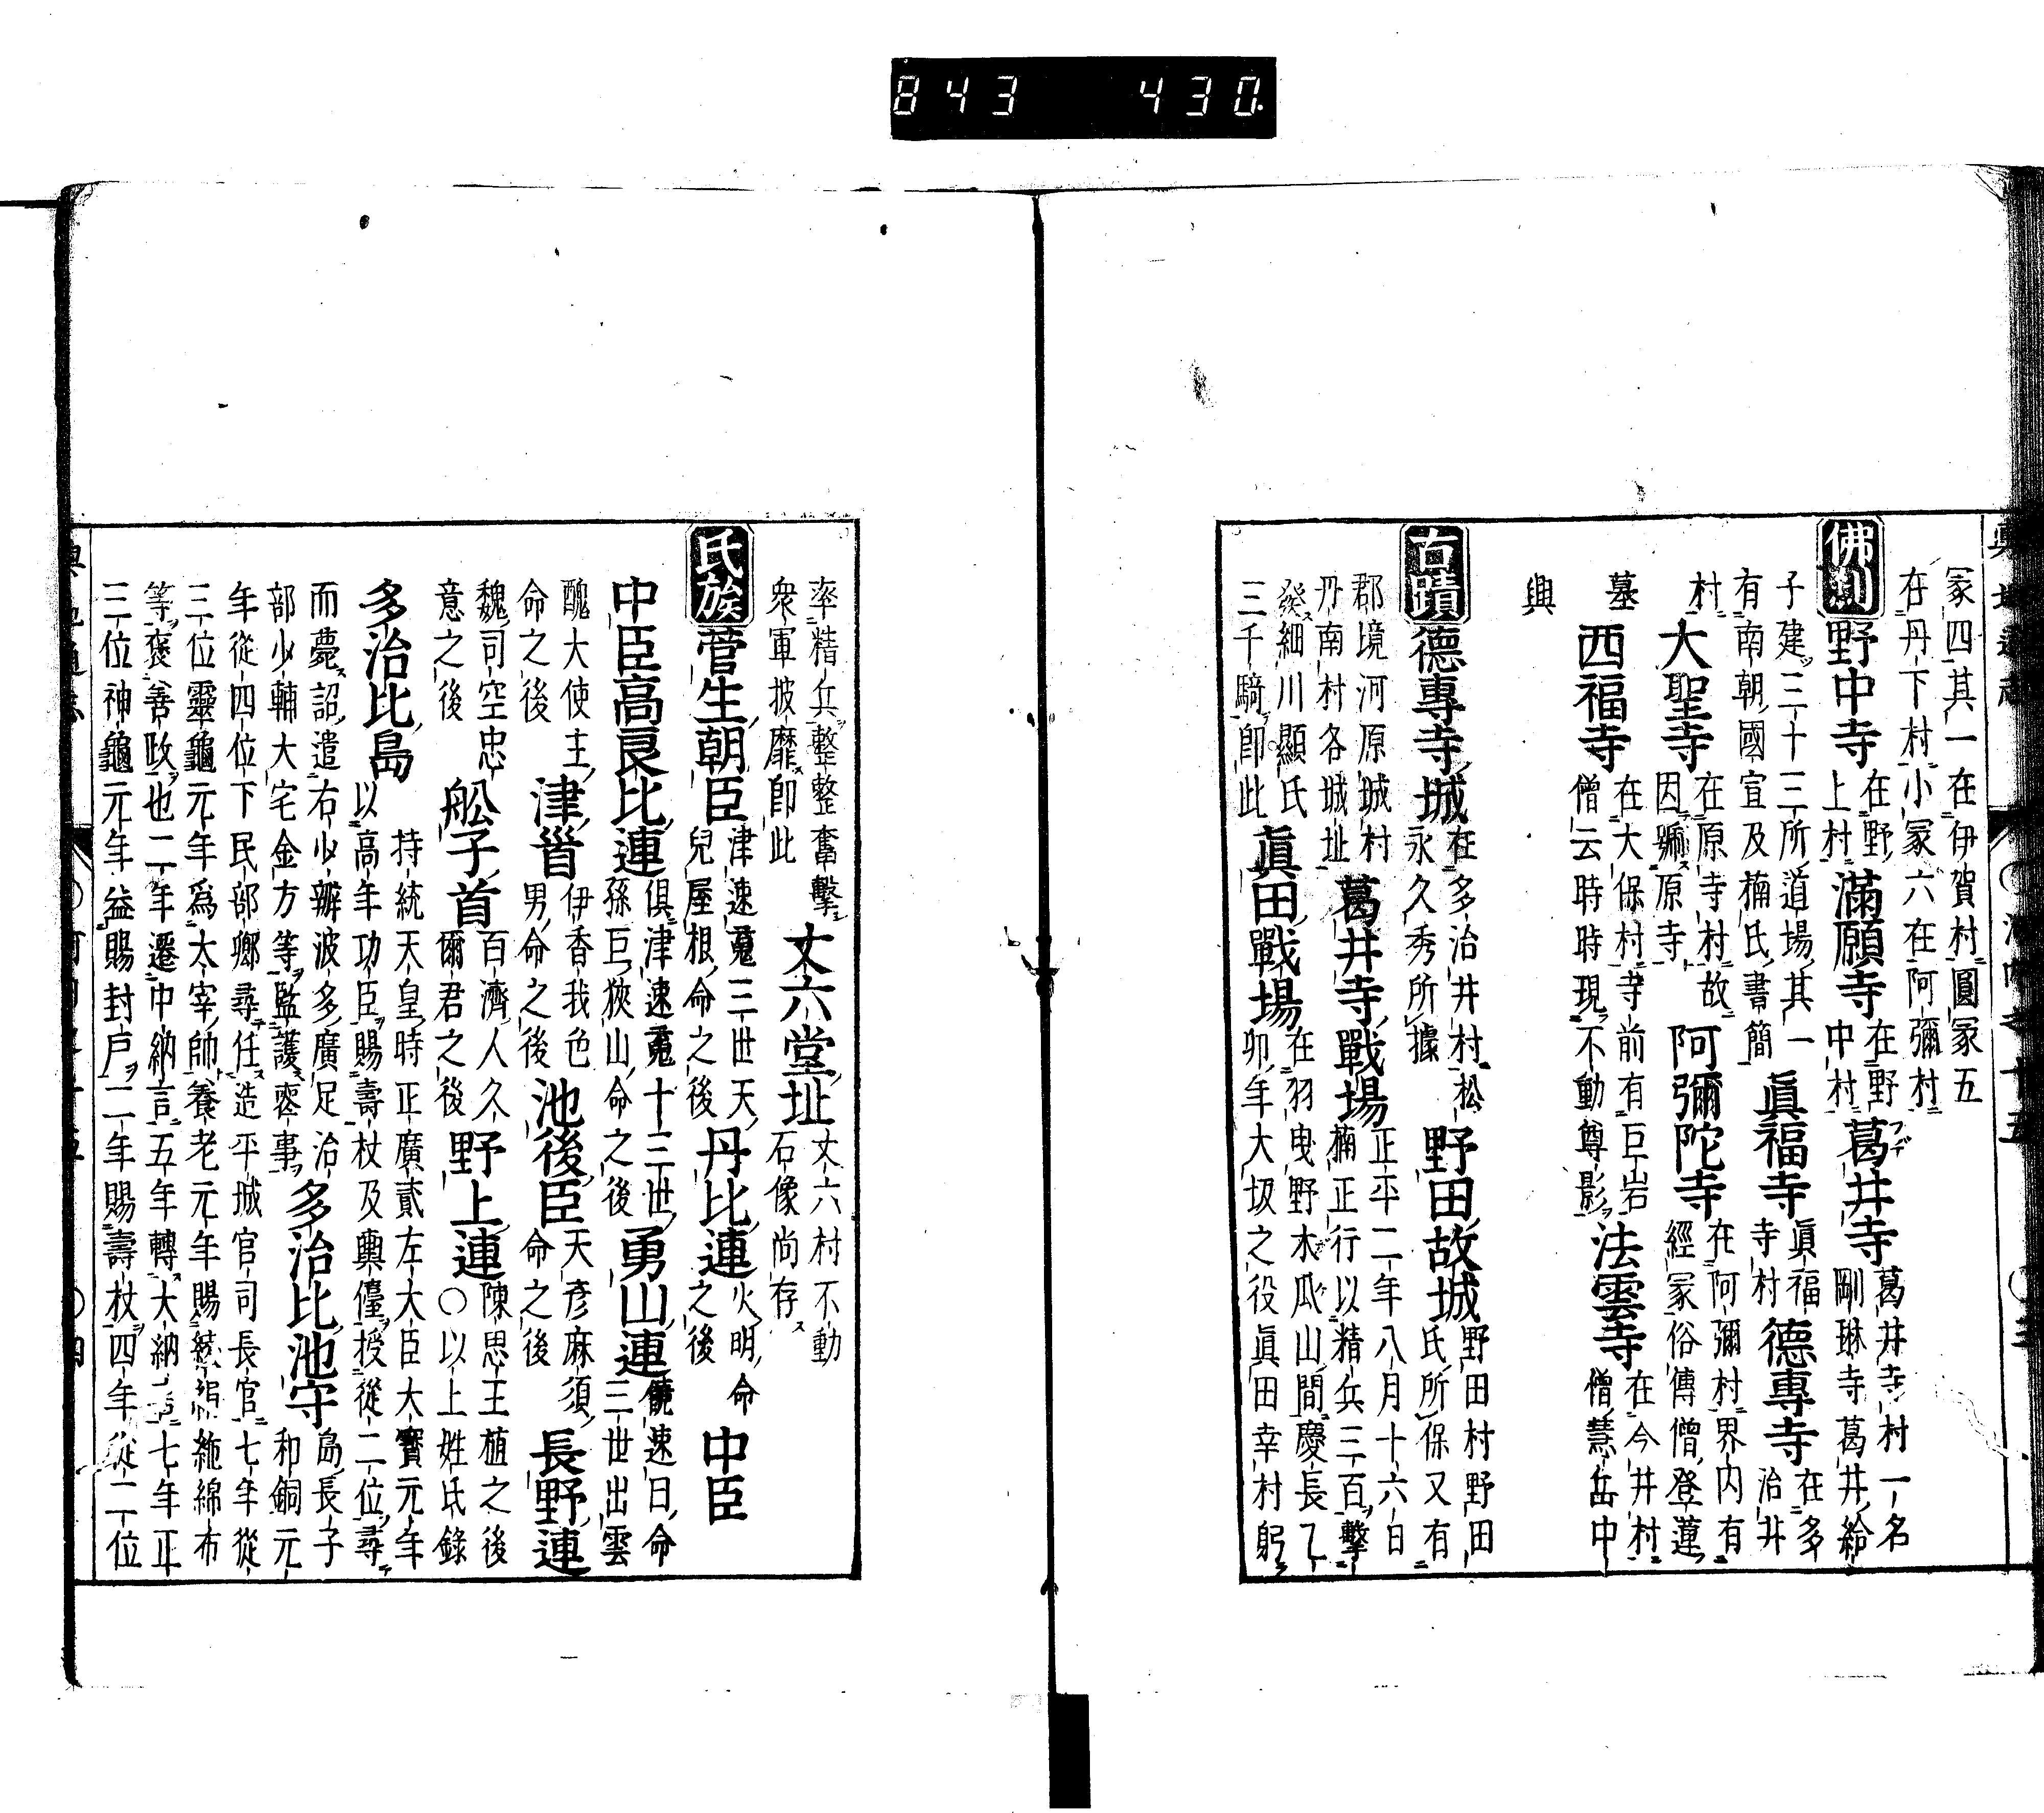 冢四其一在伊賀村圓冢五
在丹下村小冢六在阿彌村
佛刹 野中寺 在野上村 滿願寺 在野中村 葛井寺 葛井寺村一名剛琳寺葛井給
子建三十三所道場其一有南朝國宣及楠氏書簡 眞福寺 眞福寺村 德專寺 在多治井
村 大聖寺 在原寺村故因號原寺 阿彌陀寺 在阿彌村界内有經冢俗傳僧登蓮
墓 西福寺 在大保村寺前有巨岩僧云時時現不動尊影 法雲寺 在今井村僧慧岳中
興
古蹟 德專寺城 在多治井村松永久秀所據 野田故城 野田村野田氏所保又有
郡境河原城村丹南村各城址 葛井寺戰場 正平二年八月十六日楠正行以精兵三百擊
發細川顯氏三千騎即此 眞田戰場 在羽曳野木瓜山間慶長乙卯年大坂之役眞田幸村躬
率精兵整整奮擊衆軍披靡即此 丈六堂址 丈六村不動石像尚存
氏族 菅生朝臣 津速䰠三世天兒屋根命之後 丹比連 火明命之後 中臣
中臣高良比連 俱津速䰠十三世孫巨狹山命之後 勇山連 饒速日命三世出雲
醜大使主命之後 津首 伊香我色男命之後 池後臣 天彦麻須命之後 長野連
魏司空忠意之後 舩子首 百濟人久爾君之後 野上連 陳思王植之後〇以上姓氏錄
多治比島 持統天皇時正廣貳左大臣大寶元年以高年功臣賜壽杖及輿儓授從二位尋
而薨詔遣右少辨波多廣足治部少輔大宅金方等監護喪事 多治比池守 島長子和銅元
年從四位下民部卿尋任造平城官司長官七年從
三位靈龜元年爲太宰帥養老元年賜絁綿布
等褒善政也二年遷中納言五年轉大納言七年正
三位神龜元年益賜封戸二年賜壽杖四年從二位
843 430